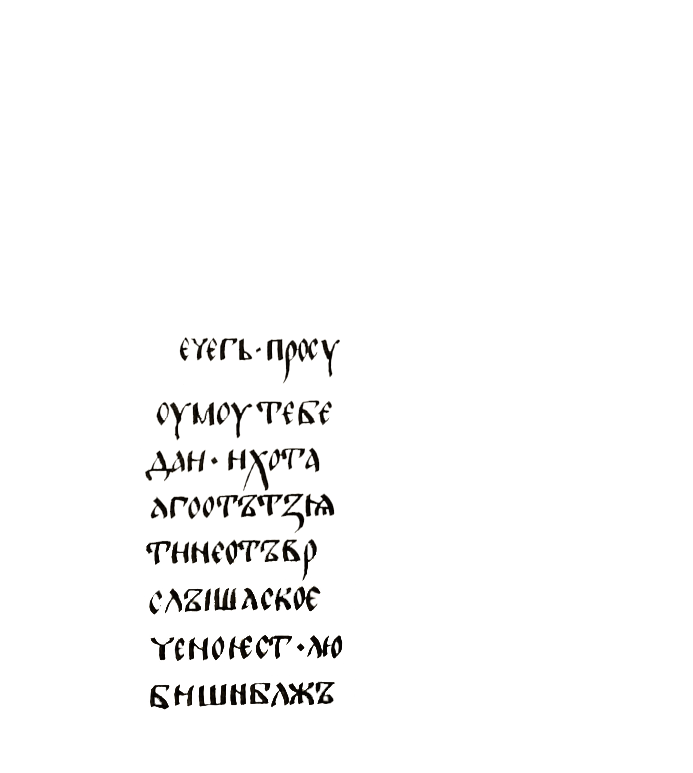 єчегь·просꙋ
оумоутебє
дан·нхота
агоотътзѩ
тннєотъвр
слъішаскоє
чемоѥст·лю
бншнблжъ